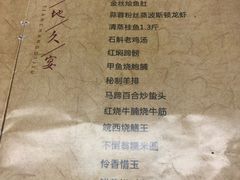 地久宴
金丝烩鱼肚
蒜蓉粉丝蒸波斯顿龙虾
清蒸桂鱼1.3斤
石斛老鸡汤
红焖蹄髈
甲鱼烧鲍脯
秘制羊排
马蹄百合炒蛰头
红烧牛腩烧牛筋
皖西烧鳝王
不倒翁糯米圆
怜香惜玉